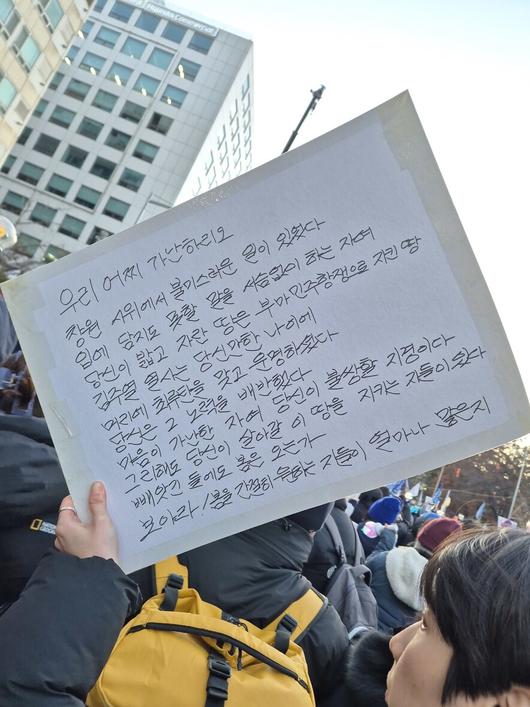 우리 어찌 가난하리오
창원 시위에서 불미스러운 일이 있었다
입에 담지도 못할 말을 서슴없이 하는 자여
당신이 밟고 자란 땅은 부마민주항쟁으로 지킨 땅
김주열 열사는 당신만한 나이에
머리에 최루탄을 맞고 운명하셨다
당신은 그 노력을 배반했다
마음이 가난한 자여 당신이 불쌍할 지경이다
그리해도 당신이 살아갈 이 땅을 지키는 자들이 있다
빼앗긴 들에도 봄은 오는가
보아라! 봄을 간절히 원하는 자들이 얼마나 많은지
NATIONAL
GEOGRAPHIC